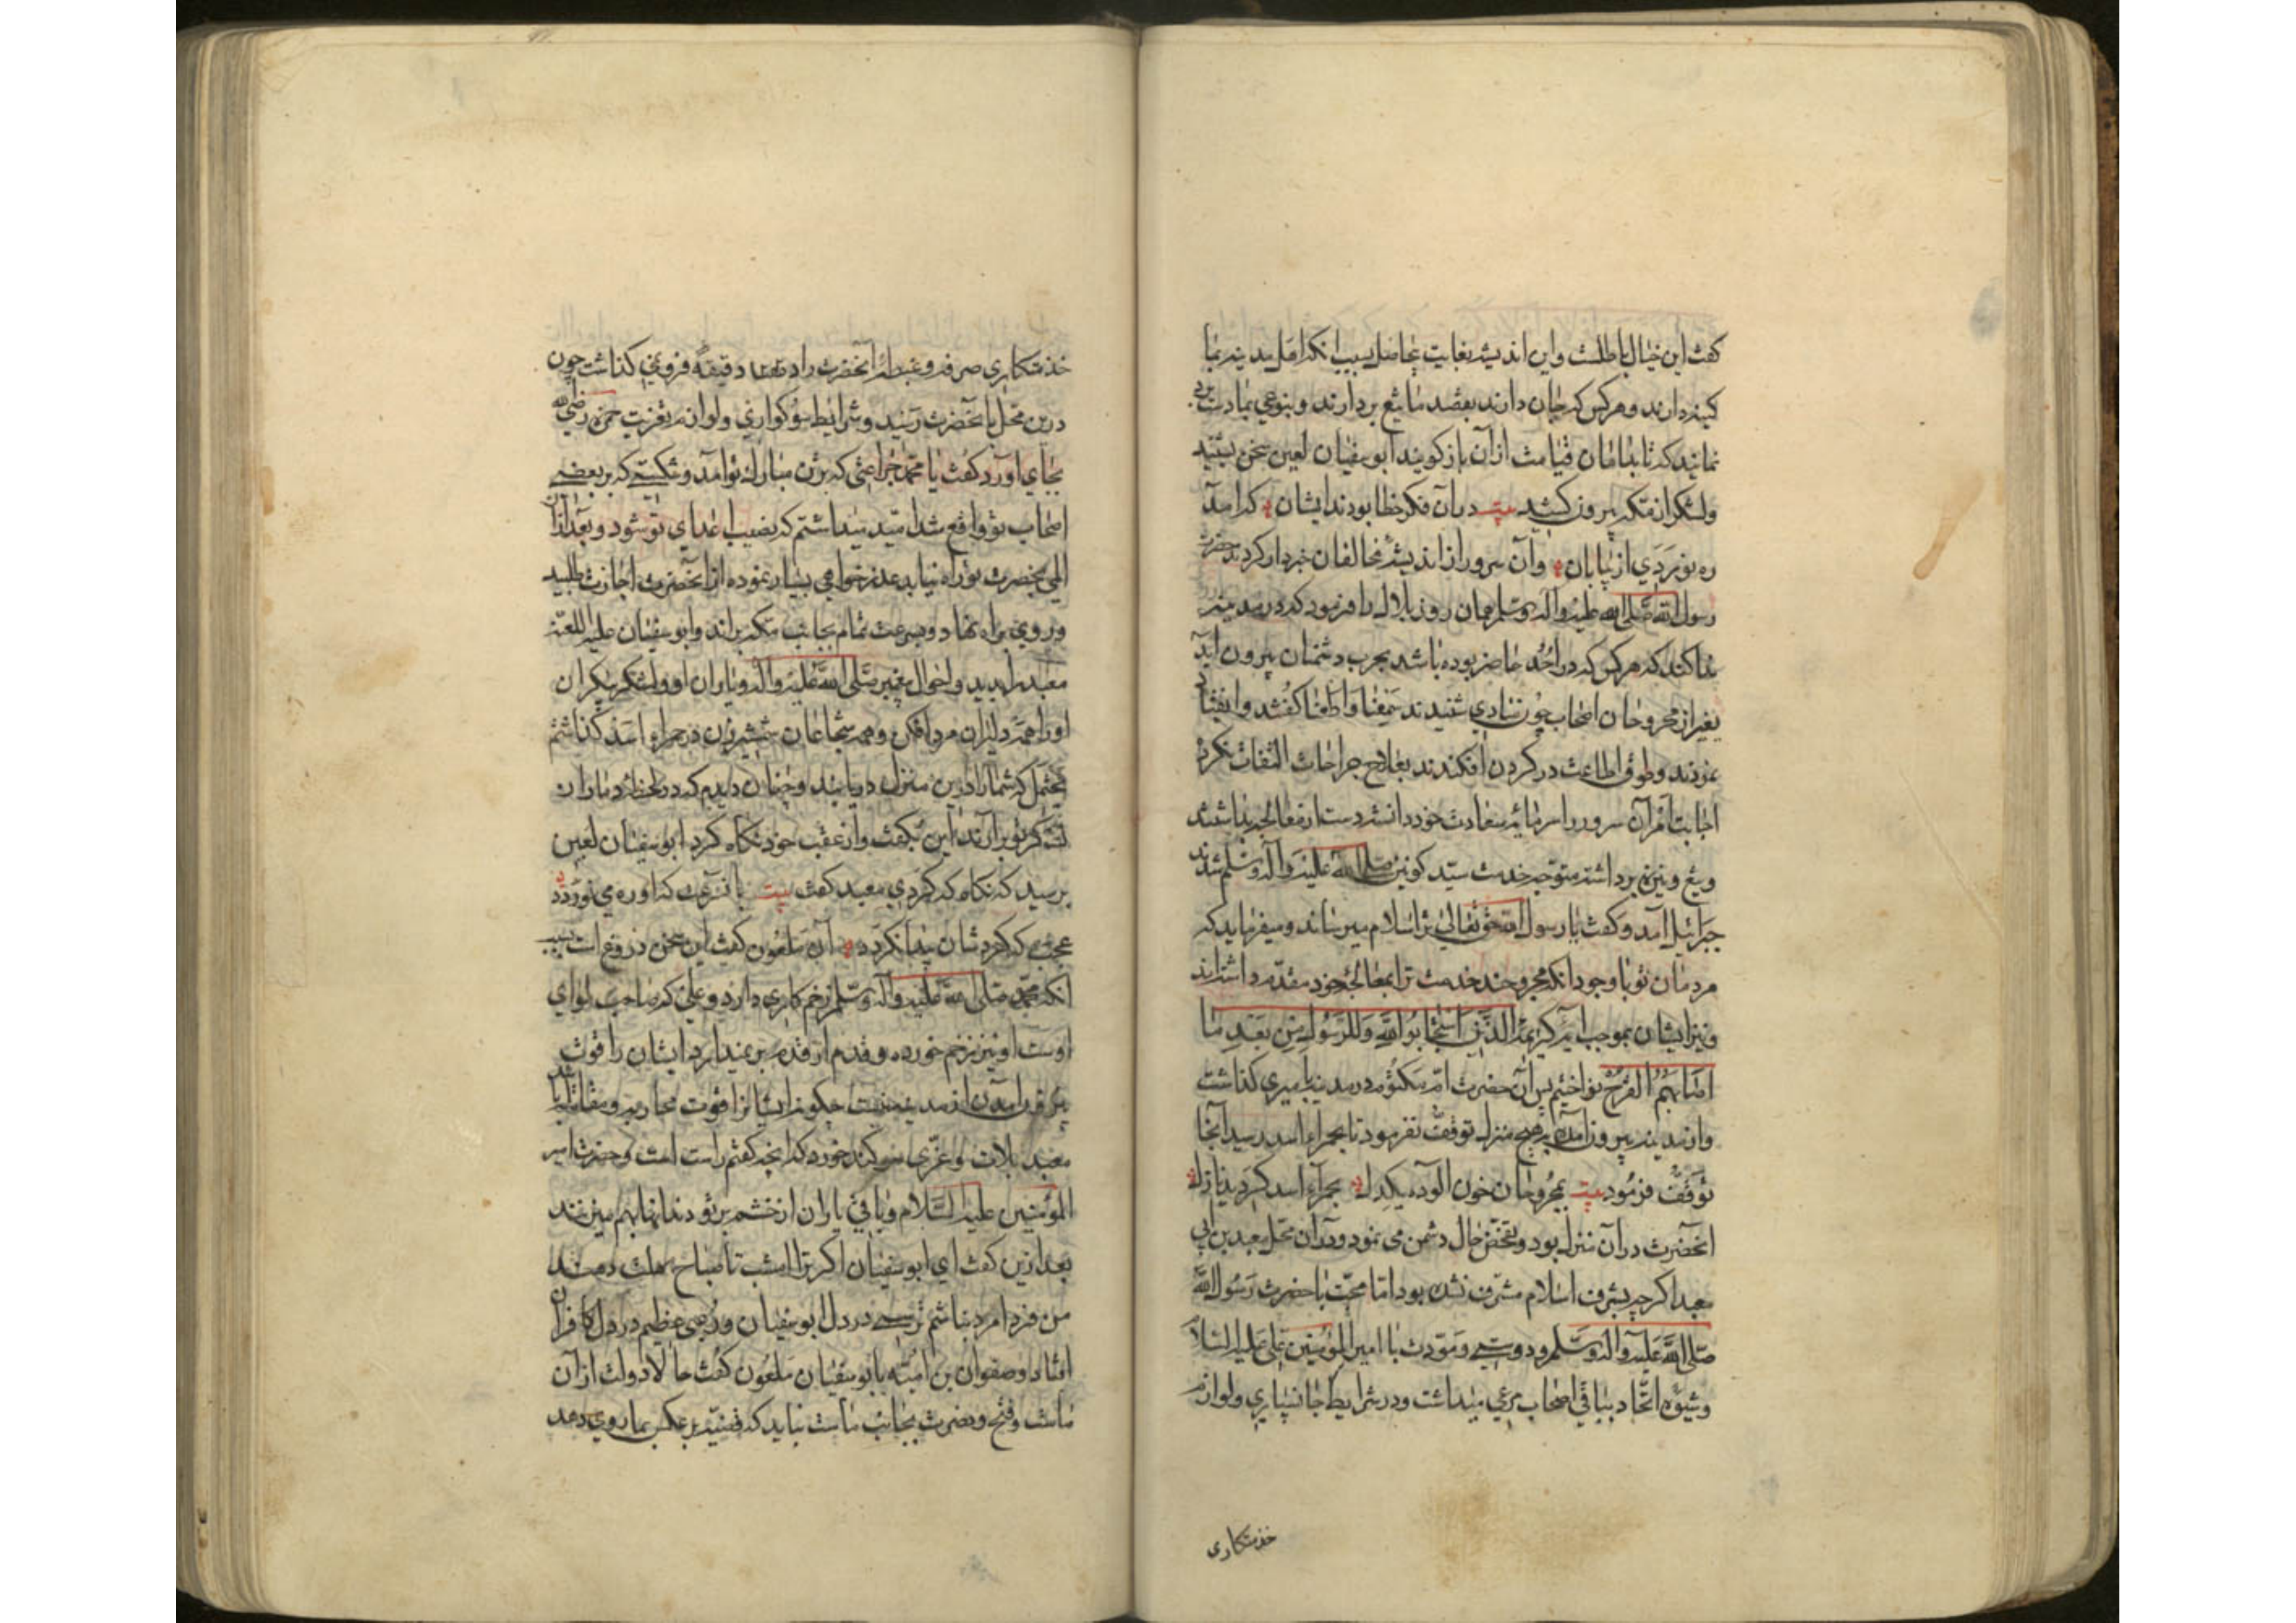 کفت این خیال باطلست واین اندیشه بغایت بیحاصل بسبب انکه اهل مدینه بما
کینه دارند وهر کس که جان دارند بقصد ما تیغ بردارند وبنوعی بما دست بردی
نمایند که تا بدامان قیامت ازآن بازکویند ابوسفیان لعین سخن بشنید
ولشکر از مکه بیرون کشید بیت درآن فکر خطا بودند ایشان که آمد
ره نوردی از بیابان وآن سرور از اندیشه مخالفان خبردار کردند حضرت
رسول الله صلی الله علیه وآله وسلم همان روز بلال را فرمود که در مدینه
ندا کند که هر کس که در احد حاضر بوده باشد بحرب دشمنان بیرون آید
بغیر از مجروحان اصحاب چون منادی شنیدند سمعنا واطعنا کفتند وانقیاد
نمودند وطوق اطاعت در کردن افکندند بعلاج جراحات التفات نکرده
اجابت امر آن سرور را سرمایه سعادت خود دانسته دست از معالجه بداشتند
وتیغ ونیزه برداشته متوجه خدمت سید کونین صلی الله علیه وآله وسلم شدند
جبرائیل آمد وکفت یا رسول الله حق تعالی ترا سلام میرساند ومیفرماید که
مردمان تو با وجود انکه مجروحند خدمت ترا بمعالجه خود مقدم داشته‌اند
ونیز ایشان بموجب آیه کریمه الذین استجابوا لله وللرسول من بعد ما
اصابهم القرح نواختیم پس آن حضرت ام مکتوم در مدینه بامیری کذاشت
واز مدینه بیرون آمده بهیچ منزل توقف نفرمود تا بحمراء اسد رسید آنجا
توقف فرمود بیت بمجروحان خون آلوده یکدل بحمراء اسد کردید نازل
انحضرت درآن منزل بود وتفحص حال دشمن می نمود ودرآن محل معبد بن ابی
معبد اکرچه بشرف اسلام مشرف نشده بود اما محبت با حضرت رسول الله
صلی الله علیه وآله وسلم ودوستی ومودت با امیرالمؤمنین علی علیه السلام
وشیوه اتحاد بباقی اصحاب مرعی میداشت ودر شرایط جانسپاری ولوازم
خدمتکاری
خدمتکاری صرفه وغبطه آنحضرت دقیقه فرو نمی کذاشت چون
درین محل با آنحضرت رسید وشرایط سوکواری ولوازم تعزیت حمزه رضی الله
بجای آورد کفت یا محمد جراحتی که بر تن مبارک تو آمد وشکستی که بر بعضی
اصحاب تو واقع شد امید میداشتم که نصیب اعدای تو شود وبعد ازآن
المی بحضرت تو راه نیابد عذرخواهی بسیار نموده از آنحضرت اجازت طلبید
وروی براه نهاد وبسرعت تمام بجانب مکه براند وابوسفیان علیه اللعنه
معبد را بدید واحوال پیغمبر صلی الله علیه وآله ویاران او ولشکر بیکران
او را همه دلیران مرد افکن وهمه شجاعان شمشیرزن در حمراء اسد کذاشتم
یحتمل که شما را درین منزل دریابند وچنان دیدم که در لحظه دمار از
لشکر تو برآرند این بکفت واز عقب خود نکاه کرد ابوسفیان لعین
پرسید که نکاه که کردی معبد کفت بیت بآن سرعت که او ره می نوردد
عجب که کردشان پیدا نکردد آن ملعون کفت این سخن دروغ است بسبب
انکه محمد صلی الله علیه وآله وسلم زخم کاری دارد وعلی که صاحب لوای
اوست او نیز زخم خورده وقدم از قدم برنمیدارد ایشان را قوت
بیرون آمدن از مدینه نیست چکونه ایشانرا قوت محاربه ومقاتله باشد
معبد بلات وعزی سوکند خورد که انچه کفتم راست است وحضرت امیر
المؤمنین علیه السلام وباقی یاران از خشم بر تو دندانها بهم میزنند
بعد ازین کفت ای ابوسفیان اکر ترا امشب تا صباح مهلت دهند
من فردا مرد نباشم ترسی در دل ابوسفیان ورعبی عظیم در دل کافران
افتاد وصفوان بن امیه بابوسفیان ملعون کفت حالا دولت ازآن
ماست وفتح ونصرت بجانب ماست نباید که قضیه برعکس بما روی دهد